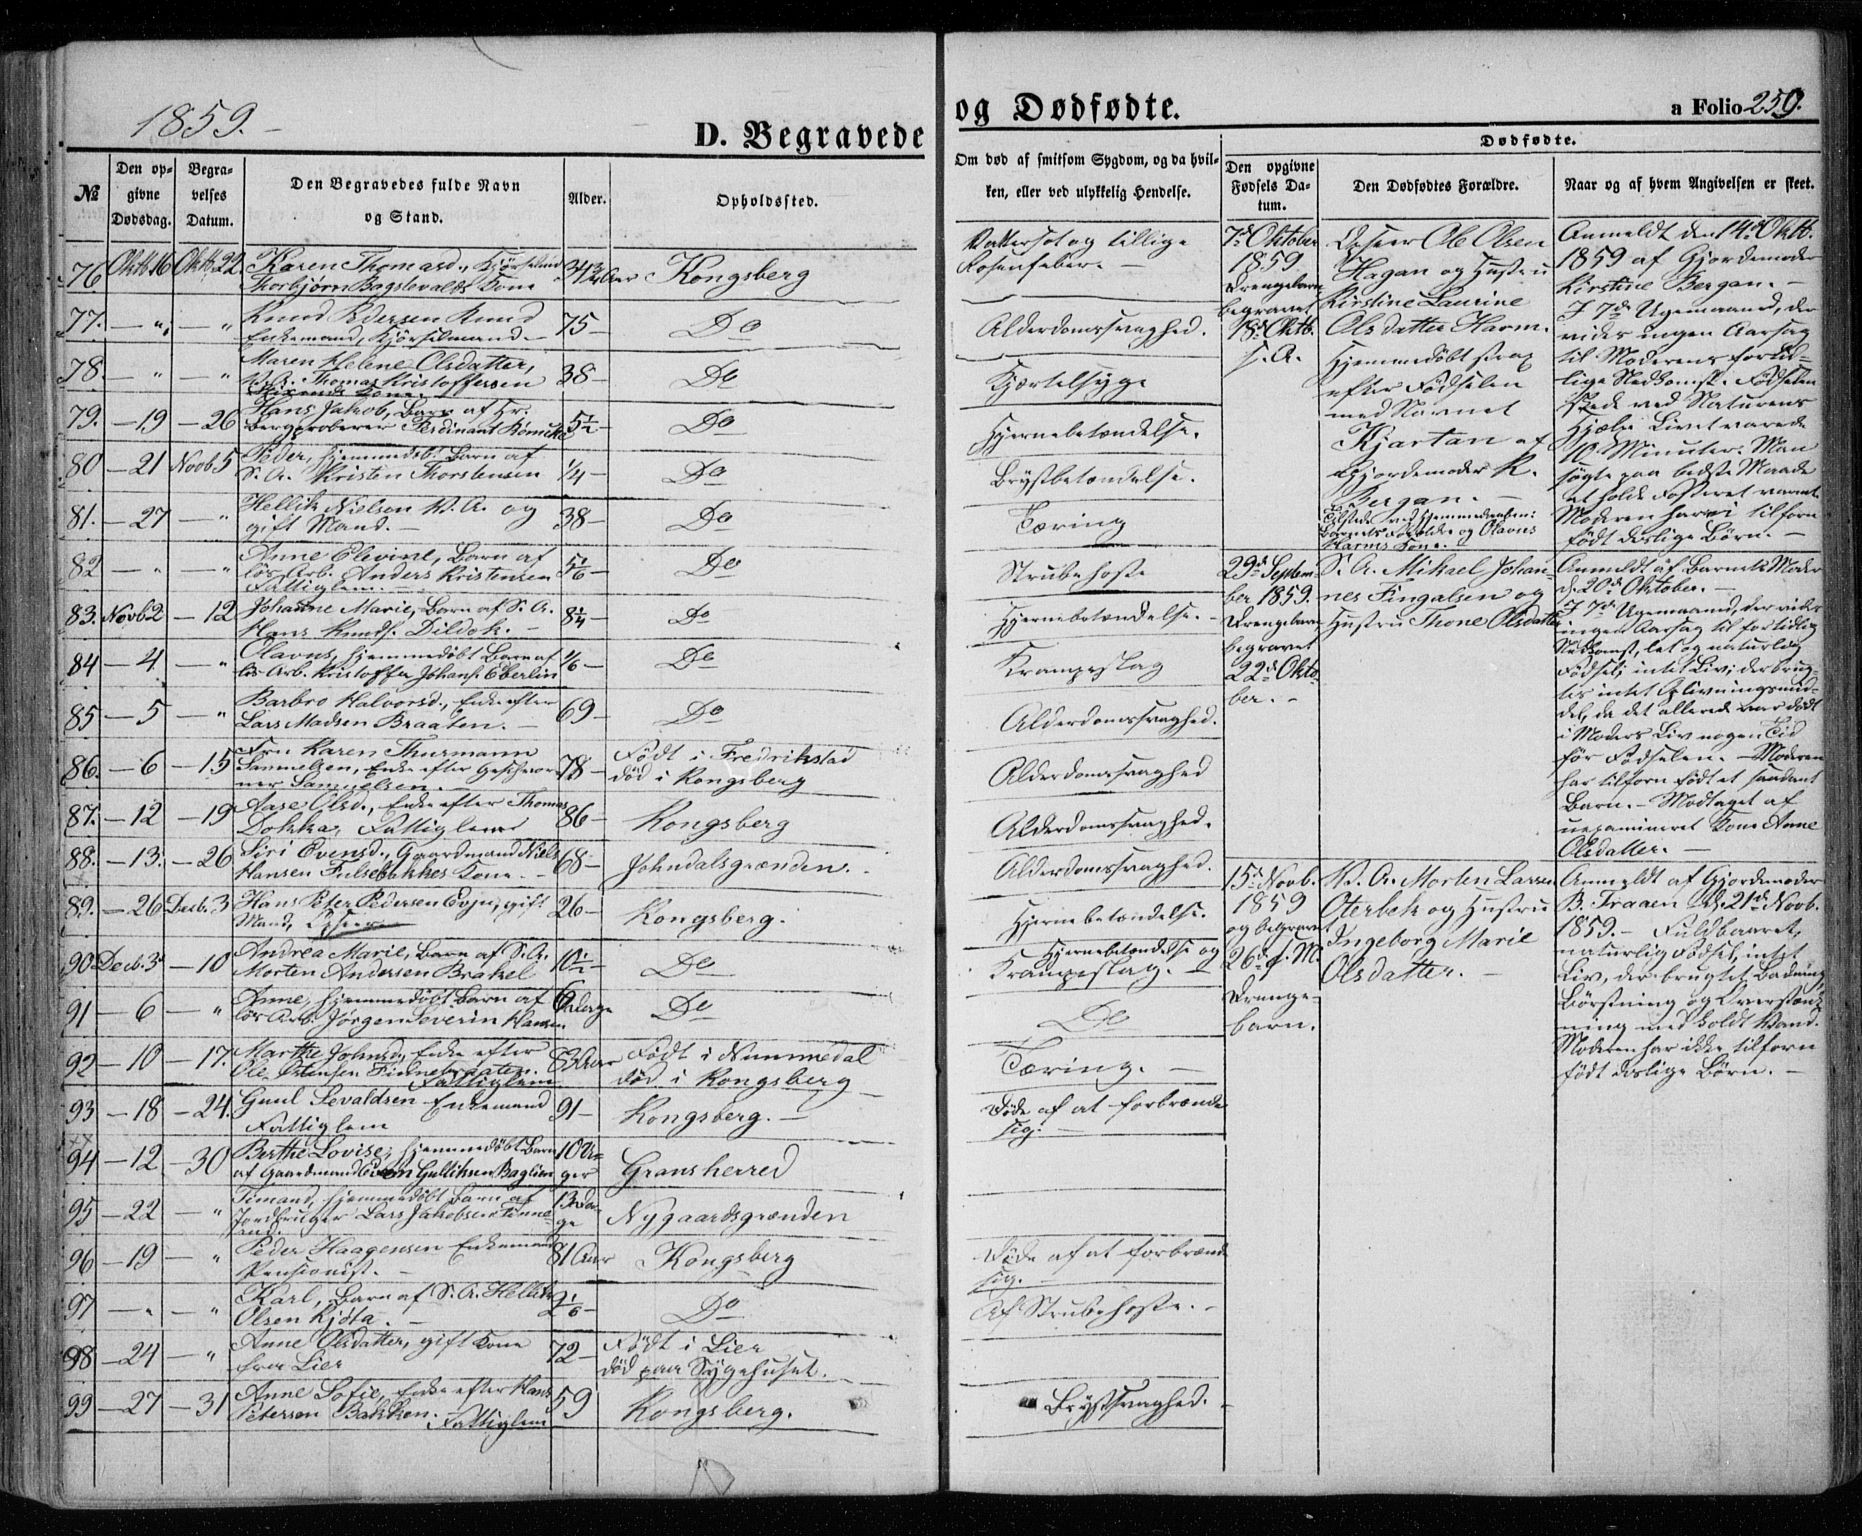 1859.
D. Begravede
og Dødfødte.
a Folio 259.
№
Den opgivne Dødsdag.
Begravelses Datum.
Den Begravedes fulde Navn
og Stand.
Alder.
Opholdssted.
Om død af smitsom Sygdom, og da hvilken, eller ved ulykkelig Hendelse.
Dødfødte.
Den opgivne Fødsels Datum.
Den Dødfødtes Forældre.
Naar og af hvem Angivelsen er skeet.
76 Oktb. 16 Oktb. 22 Karen Thomasd., Kongsberg Vattersot og tillige
Thorbjørn Kone Rosenfeber.
77. — „ — „ Knud Pedersen 75 — Do Alderdomssvaghed.
Enkemand,
78. — „ — „ Maren Helene Olsdatter, 38 — Do Kjertelsyge
Thomas Kristoffersen
Kone.
79. — 19 — 26 Hans Jakob, Barn af Hr. 5½ Do Hjernebetændelse.
Bergproberer Ferdinant
80 — 21 Novb. 5 Peder, hjemmedøbt Barn af ¼ Do Brystbetændelse.
S. A. Kristen Thorstensen
81. — 27 — „ Hellik Nielsen B. A. og 38 — Do Tæring
gift Mand. —
82 — „ — „ Anne Elevine, Barn af 5 1/6 — Do Strubehoste
løs Arb. Anders Kristensen
Fattiglem. —
83. Novb. 2 — 12 Johanne Marie, Barn af S. A. 8¼ — Do Hjernebetændelse. —
Hans Knuds.
84 — 4 — „ Olavus, hjemmedøbt Barn af 1/6 — Do Krampeslag
løs Arb. Kristoffer Johans. Eberlin
85 — 5 — „ Barbro Halvorsd., Enke efter 69 — Do Alderdomssvaghed.
Lars Madsen Braaten. —
86. — 6 — 15 Fru Karen Thurmann 78 — Født i Fredrikstad Alderdomssvaghed
Samuelsen, Enke efter Geschworner Samuelsen. — død i Kongsberg
87. — 12 — 19 Aase Olsd., Enke efter Thomas 86 — Kongsberg Alderdomssvaghed.
Dokka, Fattiglem
88. — 13. — 26 Siri Evensd., Gaardmand Niels 68 — Johndalsgrænden. Alderdomssvaghed.
Hansen Kone. —
89. — 26 Decb. 3 Hans Peter Pedersen gift 26 — Kongsberg. Hjernebetændelse.
Mand,
90 Decb. 3 — 10 Andrea Marie, Barn af S. A. 10½ — Do Hjernebetændelse og
Morten Andersen Brakel Krampeslag. —
91 — 6 — „ Anne, hjemmedøbt Barn af 6 Dage Do Do
løs Arb. Jørgen Severin Hansen
92 — 10 — 17. Marthe Johnsd., Enke efter 83 Aar Født i Nummedal Tæring. —
Ole Fattiglem død i Kongsberg
93 — 18 — 24. Guul Sevaldsen Enkemand 91 — Kongsberg. — Døde af at forbrænde
Fattiglem sig. —
94 — 12 — 30 Berthe Lovise, hjemmedøbt Barn 10 Uger Gransherred
af Gaardmand Gulliksen
95 — 22 — „ Barn af 13 Dage Nygaardsgrænden
Jordbruger Lars Jakobsen
96 — 19 — „ Peder Haagensen Enkemand 81 Aar Kongsberg Døde af at forbrænde
Pensionist. — sig. —
97 — „ — „ Karl, Barn af S. A. Hellik 2 1/6 — Do Af Strubehoste. —
Olsen Kjøta. —
98 — 24 — „ Anne Olsdatter, gift Kone 72 — Født i Lier
fra Lier død paa Sygehuset.
99 — 27 — 31 Anne Sofie, Enke efter Hans 59 Kongsberg. Brystsvaghed. —
Petersen Bakken. Fattiglem
7de Oktober
1859
Drengebarn
begravet
18de Oktb.
s. A.
Ole Olsen
Hagan og Hustru
Kirstine Laurine
Olsdatter Harm.
Hjemmedøbt strax
efter Fødselen
med Navnet
Kjartan af
Gjordemoder K.
Bergan. —
Tilstede ved Hjemmedaaben:
Barnets Forældre og Olavus
Harms Kone. —
Anmeldt den 14de Oktb.
1859 af Gjordemoder
Kirstine Bergan. —
I 7de Ugemaaned, der
vides ingen Aarsag
til Moderens fortidlige Nedkomst. Fødselen
skede ved Naturens
Hjælp. Livet varede
10 Minuter. Man
søgte paa bedste Maade
at holde Fosteret varmt.
Moderen har ei tilforn
født deslige Børn. —
29de September 1859.
Drengebarn,
begravet
22de Oktober. —
S. A. Mikael Johannes Fingalsen og
Hustru Thone Olsdatter
Anmeldt af Barnets Moder
d. 20de Oktober. —
I 7de Ugemaaned, der vides
ingen Aarsag til fortidlig
Nedkomst, let og naturlig
Fødsel; intet Liv; der brugtes intet Oplivningsmiddel, da det allerede var dødt
i Moders Liv nogen Tid
før Fødselen. — Moderen
har tilforn født et saadant
Barn. — Modtaget af
uexamineret Kone Anne
Olsdatter. —
15de Novb.
1859
og begravet
26de s. M.
Drengebarn.
B. A. Morten Larsen
Oterbek og Hustru
Ingeborg Marie
Olsdatter. —
Anmeldt af Gjordemoder
B. Fraaen d. 21de Novb.
1859. — Fuldbaaret,
naturlig Fødsel, intet
Liv, der brugtes Badning,
Børstning og Overstænkning med koldt Vand.
Moderen har ikke tilforn
født deslige Børn. —